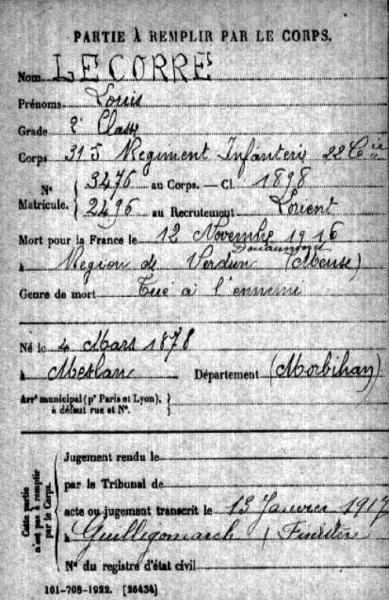 PARTIE À REMPLIR PAR LE CORPS.
Nom LE CORRE
Prénoms Louis
Grade 2e Classe
Corps 315 Regiment Infanterie 22 Cie
N° Matricule. 3476 au Corps. — Cl. 1898
2496 au Recrutement Lorient
Mort pour la France le 12 Novembre 1916
Douaumont
à Region de Verdun (Meuse)
Genre de mort Tué à l'ennemi
Né le 4 Mars 1878
à Meslan Département (Morbihan)
Arrt municipal (pr Paris et Lyon), à défaut rue et N°.
Cette partie n'est pas à remplir par le Corps.
Jugement rendu le
par le Tribunal de
acte ou jugement transcrit le 13 Janvier 1917
à Guilligomarch (Finistère
N° du registre d'état civil
101-708-1922. [26434]